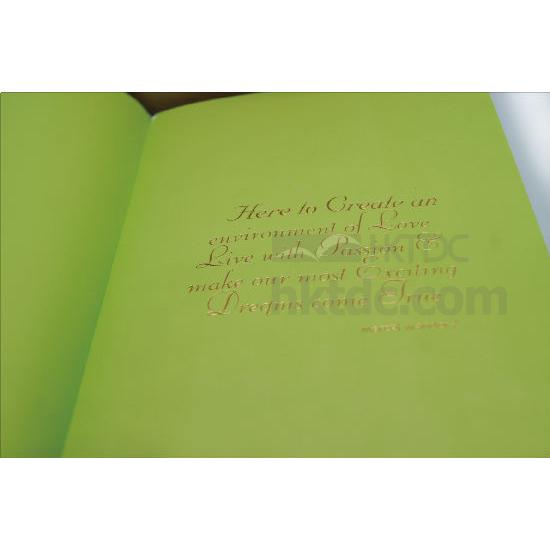 Here to Create an
environment of Love
Live with Passion &
make our most Exciting
Dreams come True
HKTDC
hktdc.com